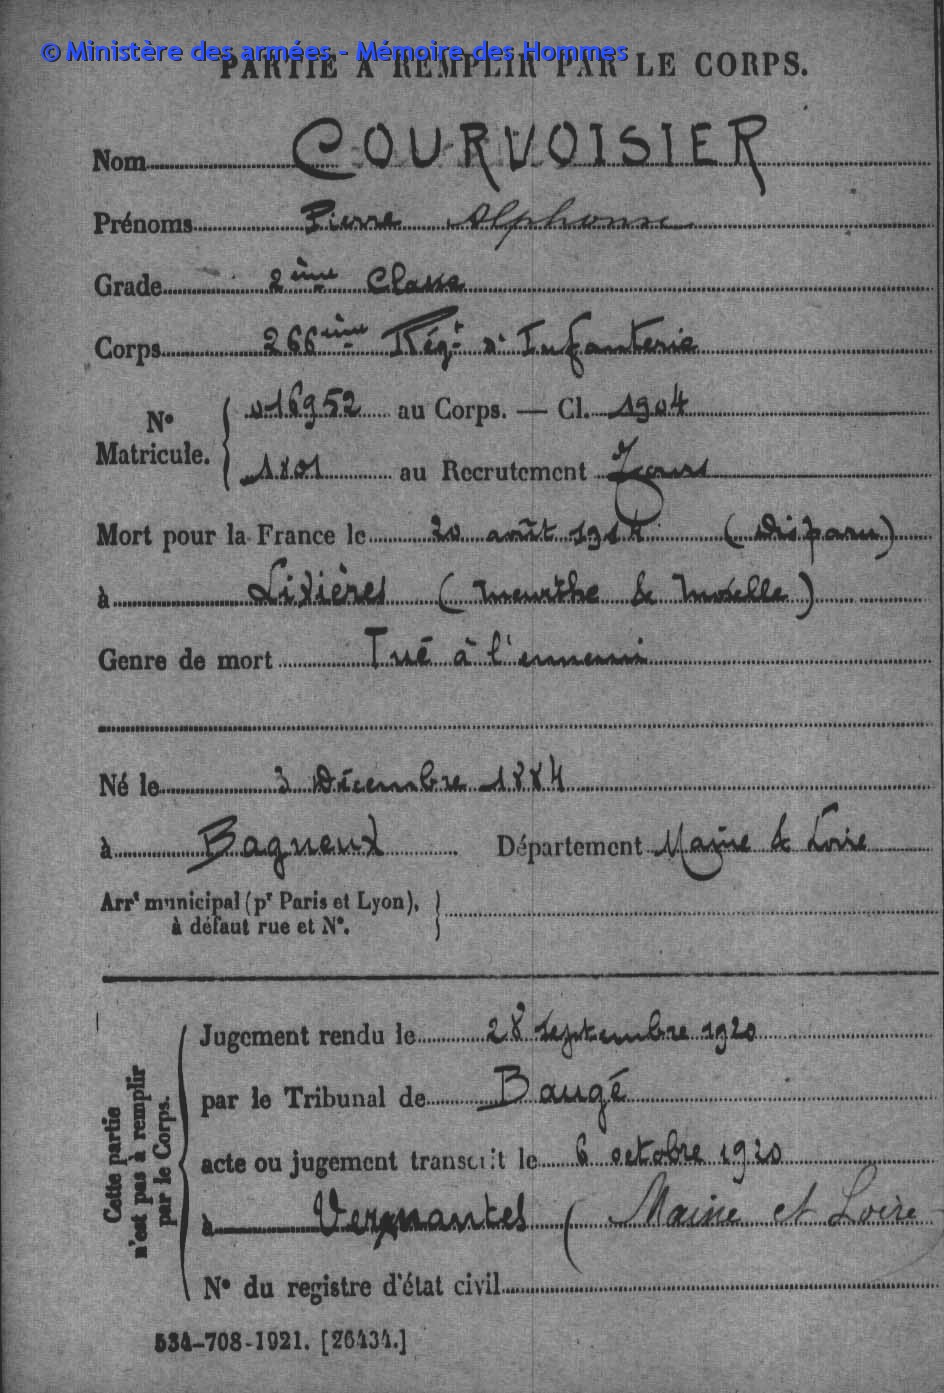 © Ministère des armées - Mémoire des Hommes
PARTIE A REMPLIR PAR LE CORPS.
Nom COURVOISIER
Prénoms Pierre Alphonse
Grade 2ème Classe
Corps 266ème Régt d' Infanterie
N° Matricule. { 016952 au Corps. — Cl. 1904
1801 au Recrutement Tours
Mort pour la France le 20 août 1914 (Disparu)
à Lixières (Meurthe & Moselle)
Genre de mort Tué à l'ennemi
Né le 3 Décembre 1884
à Bagneux Département Maine & Loire
Arrt municipal (pr Paris et Lyon),
à défaut rue et N°.
Cette partie n'est pas à remplir par le Corps.
Jugement rendu le 28 septembre 1920
par le Tribunal de Baugé
acte ou jugement transcrit le 6 octobre 1920
à Vernantes (Maine et Loire
N° du registre d'état civil
534-708-1921. [26434.]